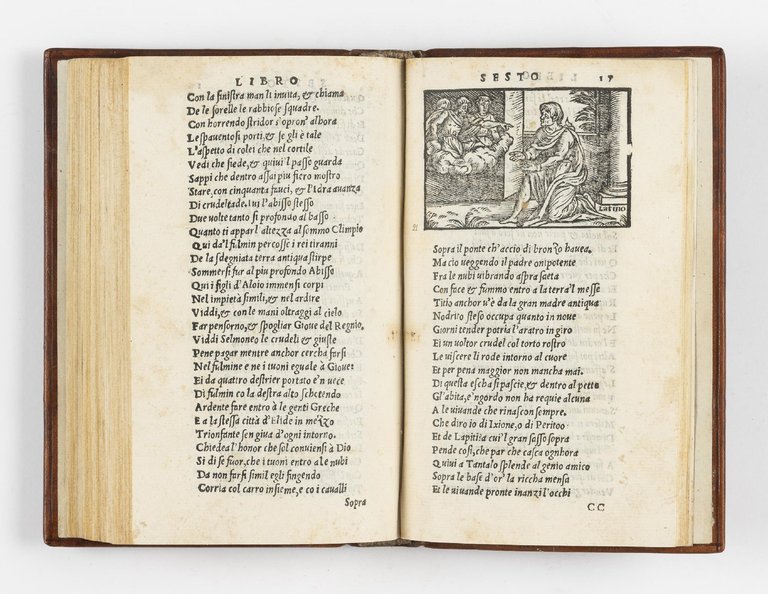 LIBRO
Con la sinistra man li inuita, & chiama
De le sorelle le rabbiose squadre.
Con horrendo stridor s'opron' alhora
Le spauentosi porti, & se gli è tale
L'aspetto di colei che nel cortile
Vedi che siede, & quiui'l passo guarda
Sappi che dentro assai piu fiero mostro
Stare, con cinquanta fauci, & l'Idra auanza
Di crudeltade. lui l'abisso stesso
Due volte tanto si profondo al basso
Quanto ti appar'l altezza al sommo Olimpio
Qui da'l fulmin percosse i rei tiranni
De la sdegniata terra antiqua stirpe
Sommersi fur al piu profondo Abisso
Qui i figli d'Aloio immensi corpi
Nel impietà simili, & nel ardire
Viddi, & con le mani oltraggi al cielo
Far pensorno, & spogliar Gioue del Regnio.
Viddi Selmoneo le crudeli & giuste
Pene pagar mentre anchor cercha farsi
Nel fulmine e ne i tuoni eguale à Gioue:
Ei da quattro destrier portato e'n uece
Di fulmin co la destra alto schotendo
Ardente fare entro à le genti Greche
E a la stessa città d'Elide in mezzo
Trionfante sen giua d'ogni intorno.
Chiedea l'honor che sol conuiensi à Dio
Si di se fuor, che i tuoni entro a le nubi
Da non farsi simil egli fingendo
Corria col carro insieme, e co i caualli
Sopra
SESTO 17
Latino
Sopra il ponte ch'accio di bronzo hauea.
Ma cio ueggendo il padre onipotente
Fra le nubi uibrando aspra saeta
Con foce & fummo entro a la terra'l messe
Titio anchor u'è da la gran madre antiqua
Nodrito steso occupa quanto in noue
Giorni tender potria l'aratro in giro
Ei un uoltor crudel col torto rostro
Le uiscere li rode intorno al cuore
Et per pena maggior non mancha mai.
Di questa escha si pascie, & dentro al petto
Gl'abita, e'ngordo non ha requie alcuna
A le uiuande che rinascon sempre.
Che diro io di Ixione, o di Peritoo
Et de Lapiti à cui'l gran sasso sopra
Pende cosi, che par che casca ognhora
Quiui a Tantalo splende al genio amico
Sopra le base d'or' la riccha mensa
Et le uiuande pronte inanzi l'occhi
CC